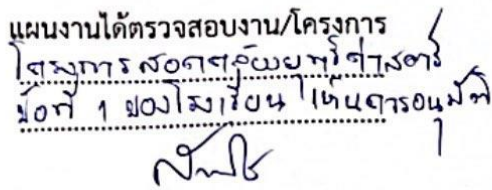 แผนงานได้ตรวจสอบงาน/โครงการ
โครงการสอดคล้องยุทธศาสตร์
ข้อที่ 1 ของโรงเรียน เห็นควรอนุมัติ